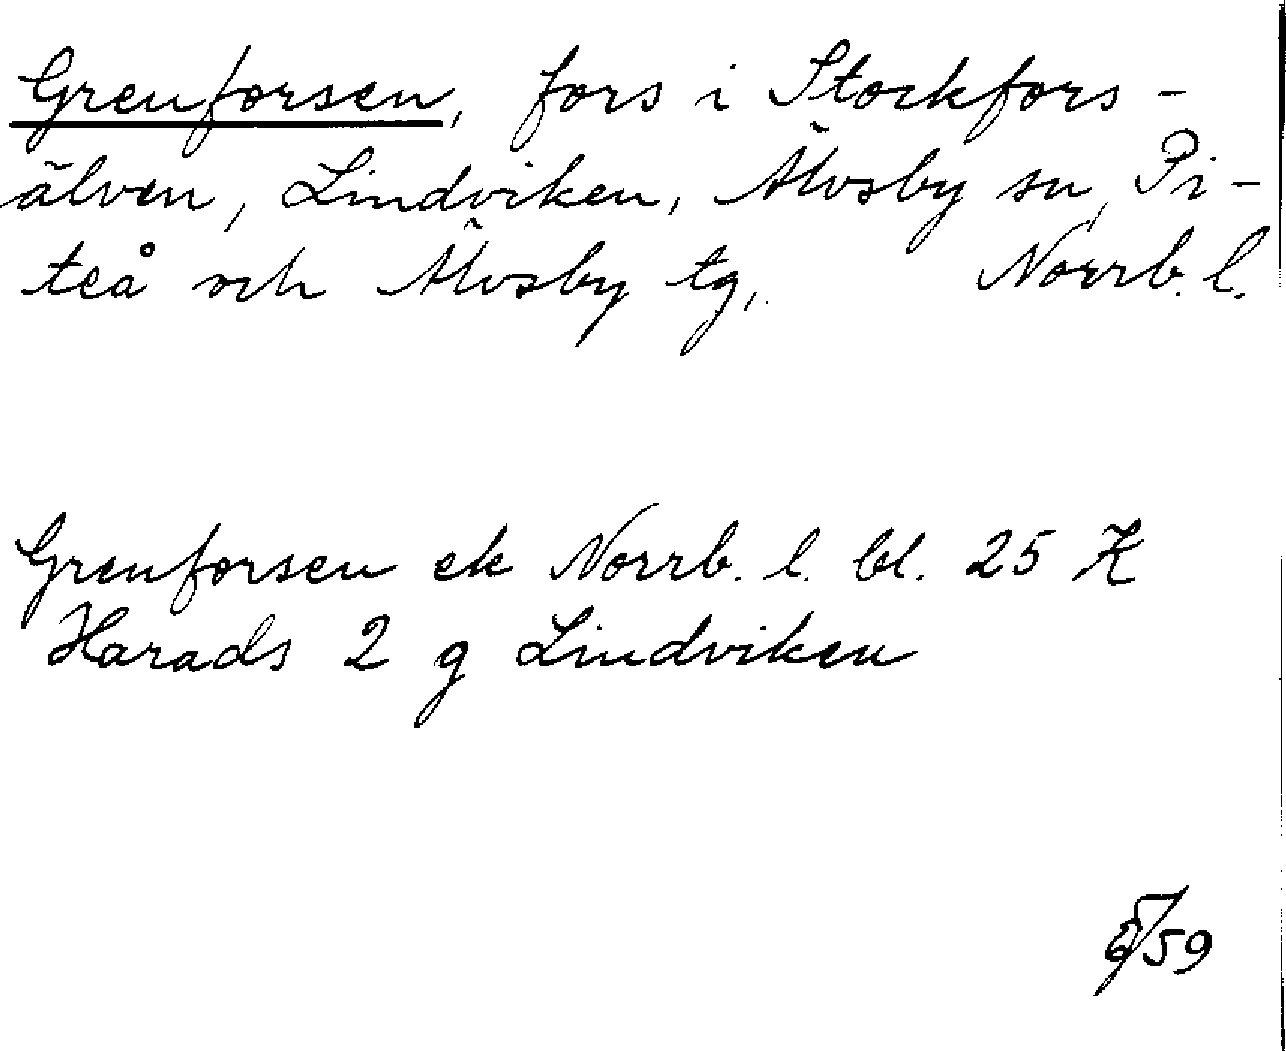 Grenforsen, fors i Stockfors-
älven, Lindviken, Älvsby sn, Pi-
teå och Älvsby tg, Norrb. l.
Grenforsen ek Norrb. l. bl. 25 K
Harads 2 g Lindviken
/59